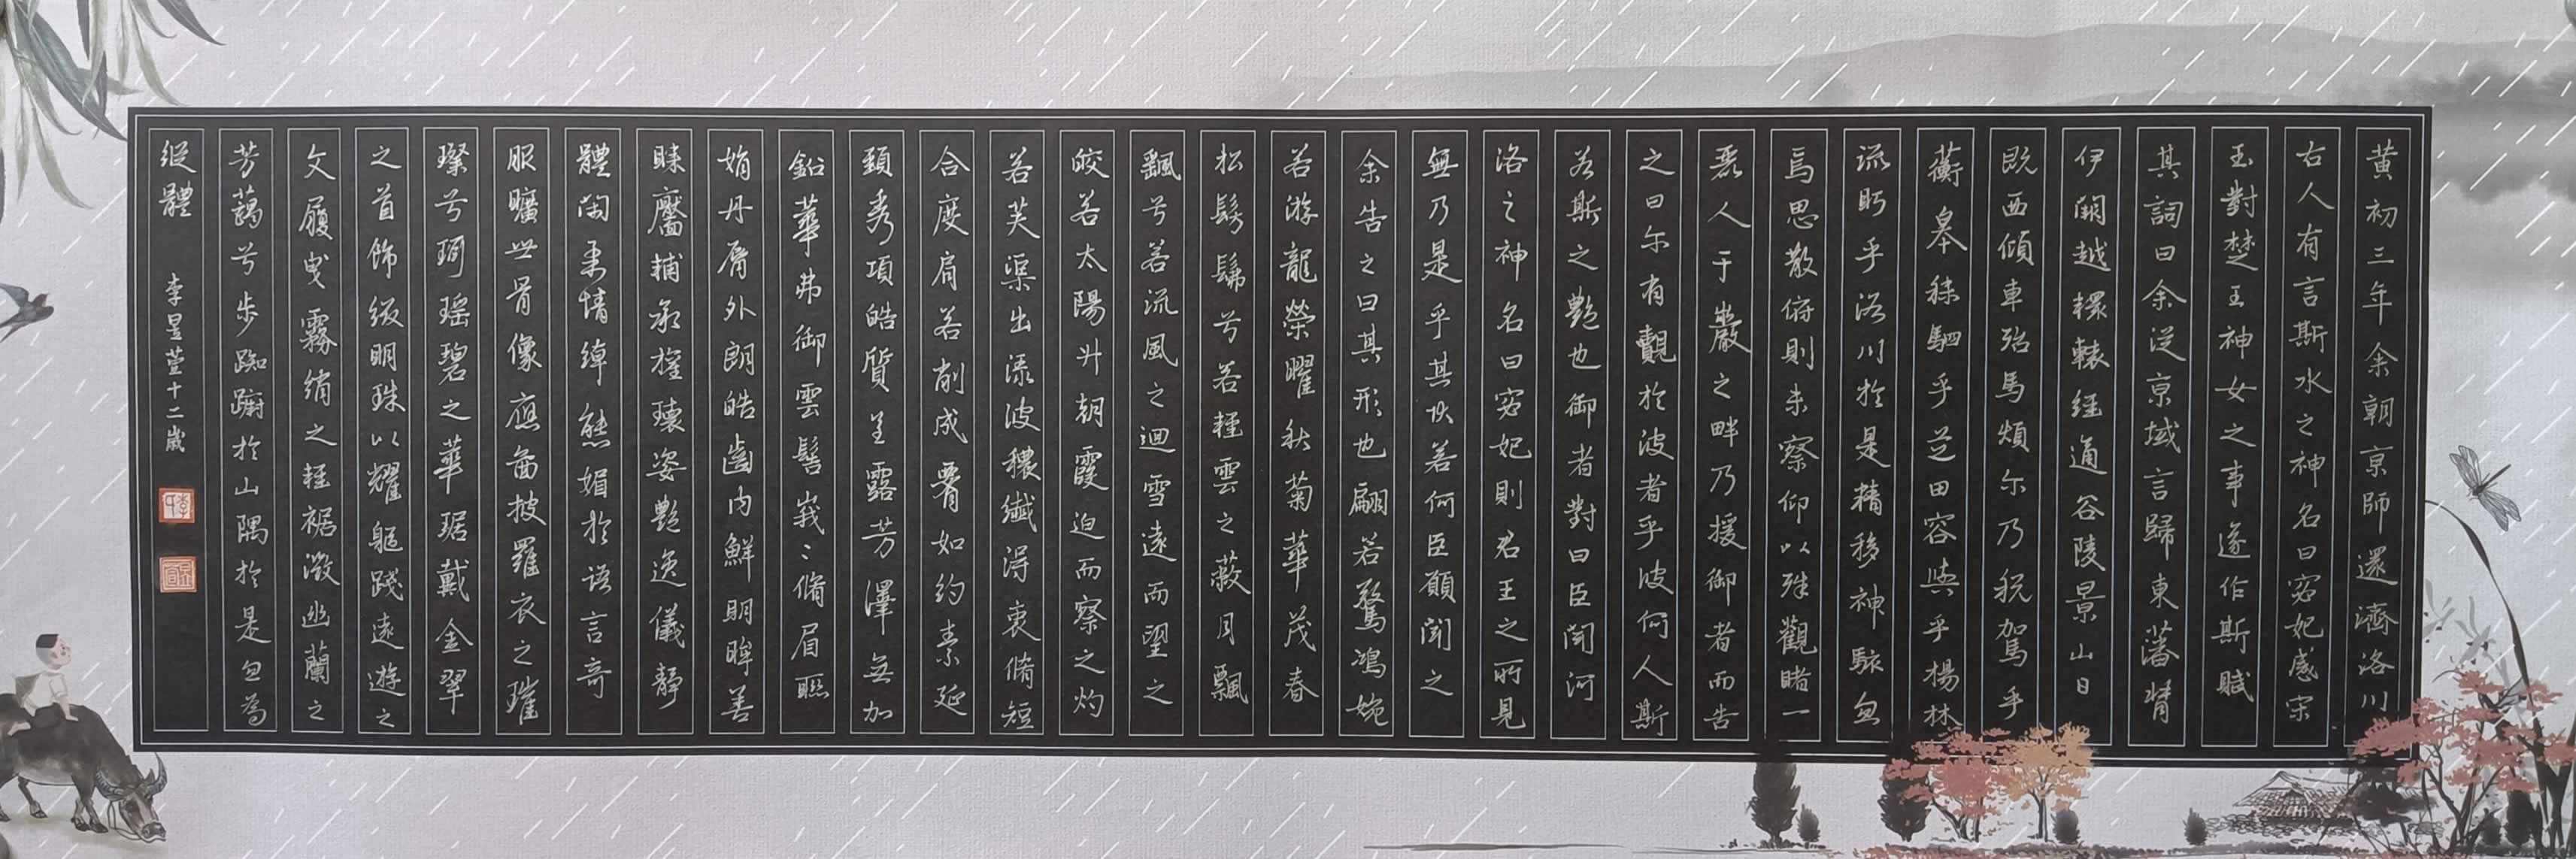 黃初三年余朝京師還濟洛川
古人有言斯水之神名曰宓妃感宋
玉對楚王神女之事遂作斯賦
其詞曰余從京域言歸東藩背
伊闕越轘轅經通谷陵景山日
既西傾車殆馬煩尔乃稅駕乎
蘅皋秣駟乎芝田容與乎楊林
流眄乎洛川於是精移神駭忽
焉思散俯則未察仰以殊觀睹一
麗人于巖之畔乃援御者而告
之曰尔有覿於彼者乎彼何人斯
若斯之艷也御者對曰臣聞河
洛之神名曰宓妃則君王之所見
無乃是乎其狀若何臣願聞之
余告之曰其形也翩若驚鴻婉
若游龍榮曜秋菊華茂春
松髣髴兮若輕雲之蔽月飄
飖兮若流風之迴雪遠而望之
皎若太陽升朝霞迫而察之灼
若芙渠出淥波穠纖得衷脩短
合度肩若削成腰如約素延
頸秀項皓質呈露芳澤無加
鉛華弗御雲髻峩〻脩眉聯
娟丹脣外朗皓齒內鮮明眸善
睞靨輔承權瓌姿艷逸儀靜
體閑柔情綽態媚於語言奇
服曠世骨像應圖披羅衣之璀
璨兮珥瑤碧之華琚戴金翠
之首飾綴明珠以耀軀踐遠遊之
文履曳霧綃之輕裾微幽蘭之
芳藹兮步踟躕於山隅於是忽焉
縱體 李昱萱十二歲